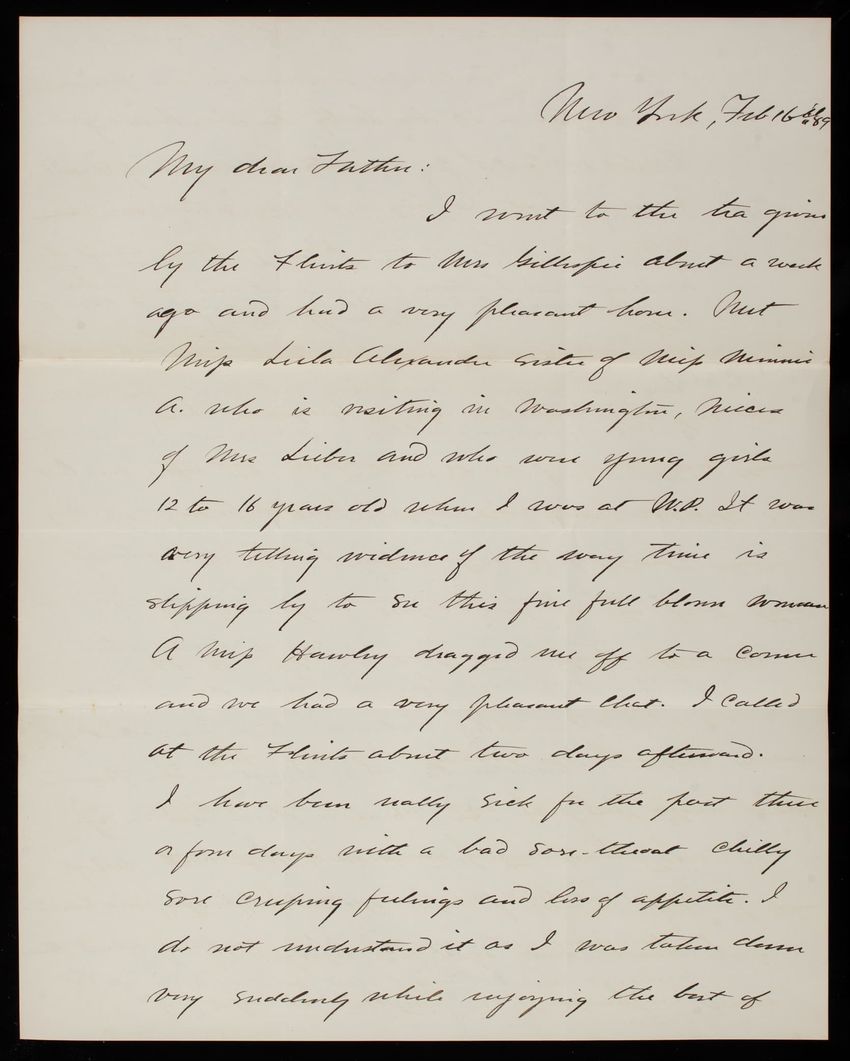 New York, Feb 16th 89
My dear Father:
I went to the tea given
by the Flints to Mrs Gillespie about a week
ago and had a very pleasant hour. Met
Miss Lula Alexander sister of Miss Minnie
A. who is visiting in Washington, nieces
of Mrs Lieber and who were young girls
12 to 16 years old when I was at W.P. It was
very telling evidence of the way time is
slipping by to see this fine full blown woman
A Miss Hawley dragged me off to a corner
and we had a very pleasant chat. I called
at the Flints about two days afterward.
I have been really sick for the past three
or four days with a bad sore-throat chilly
sore creeping feelings and loss of appetite. I
do not understand it as I was taken down
very suddenly while enjoying the best of